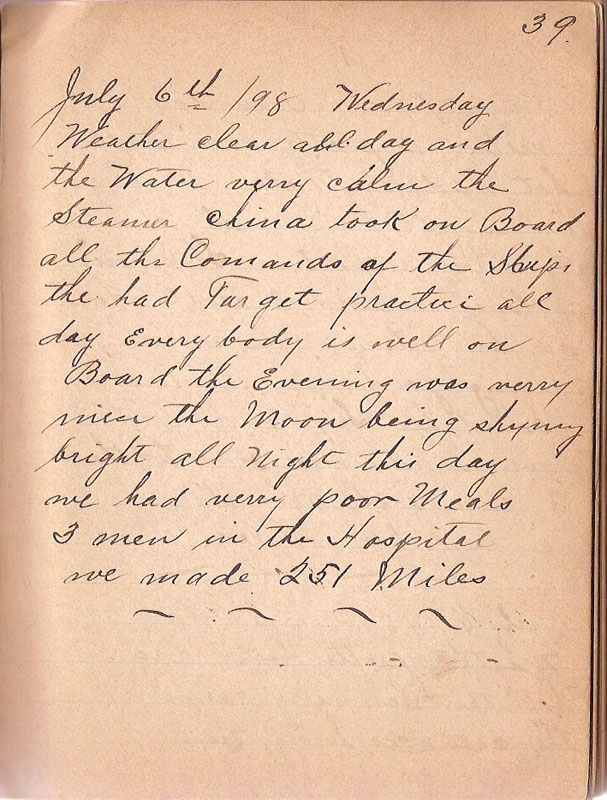 39.
July 6th /98 Wednesday
Weather clear all day and
the Water verry calm the
Steamer China took on Board
all the Comands of the Ships
the had Target practice all
day Every body is well on
Board the Evening was verry
nice the Moon being shynny
bright all Night this day
we had verry poor Meals
3 men in the Hospital
we made 251 Miles